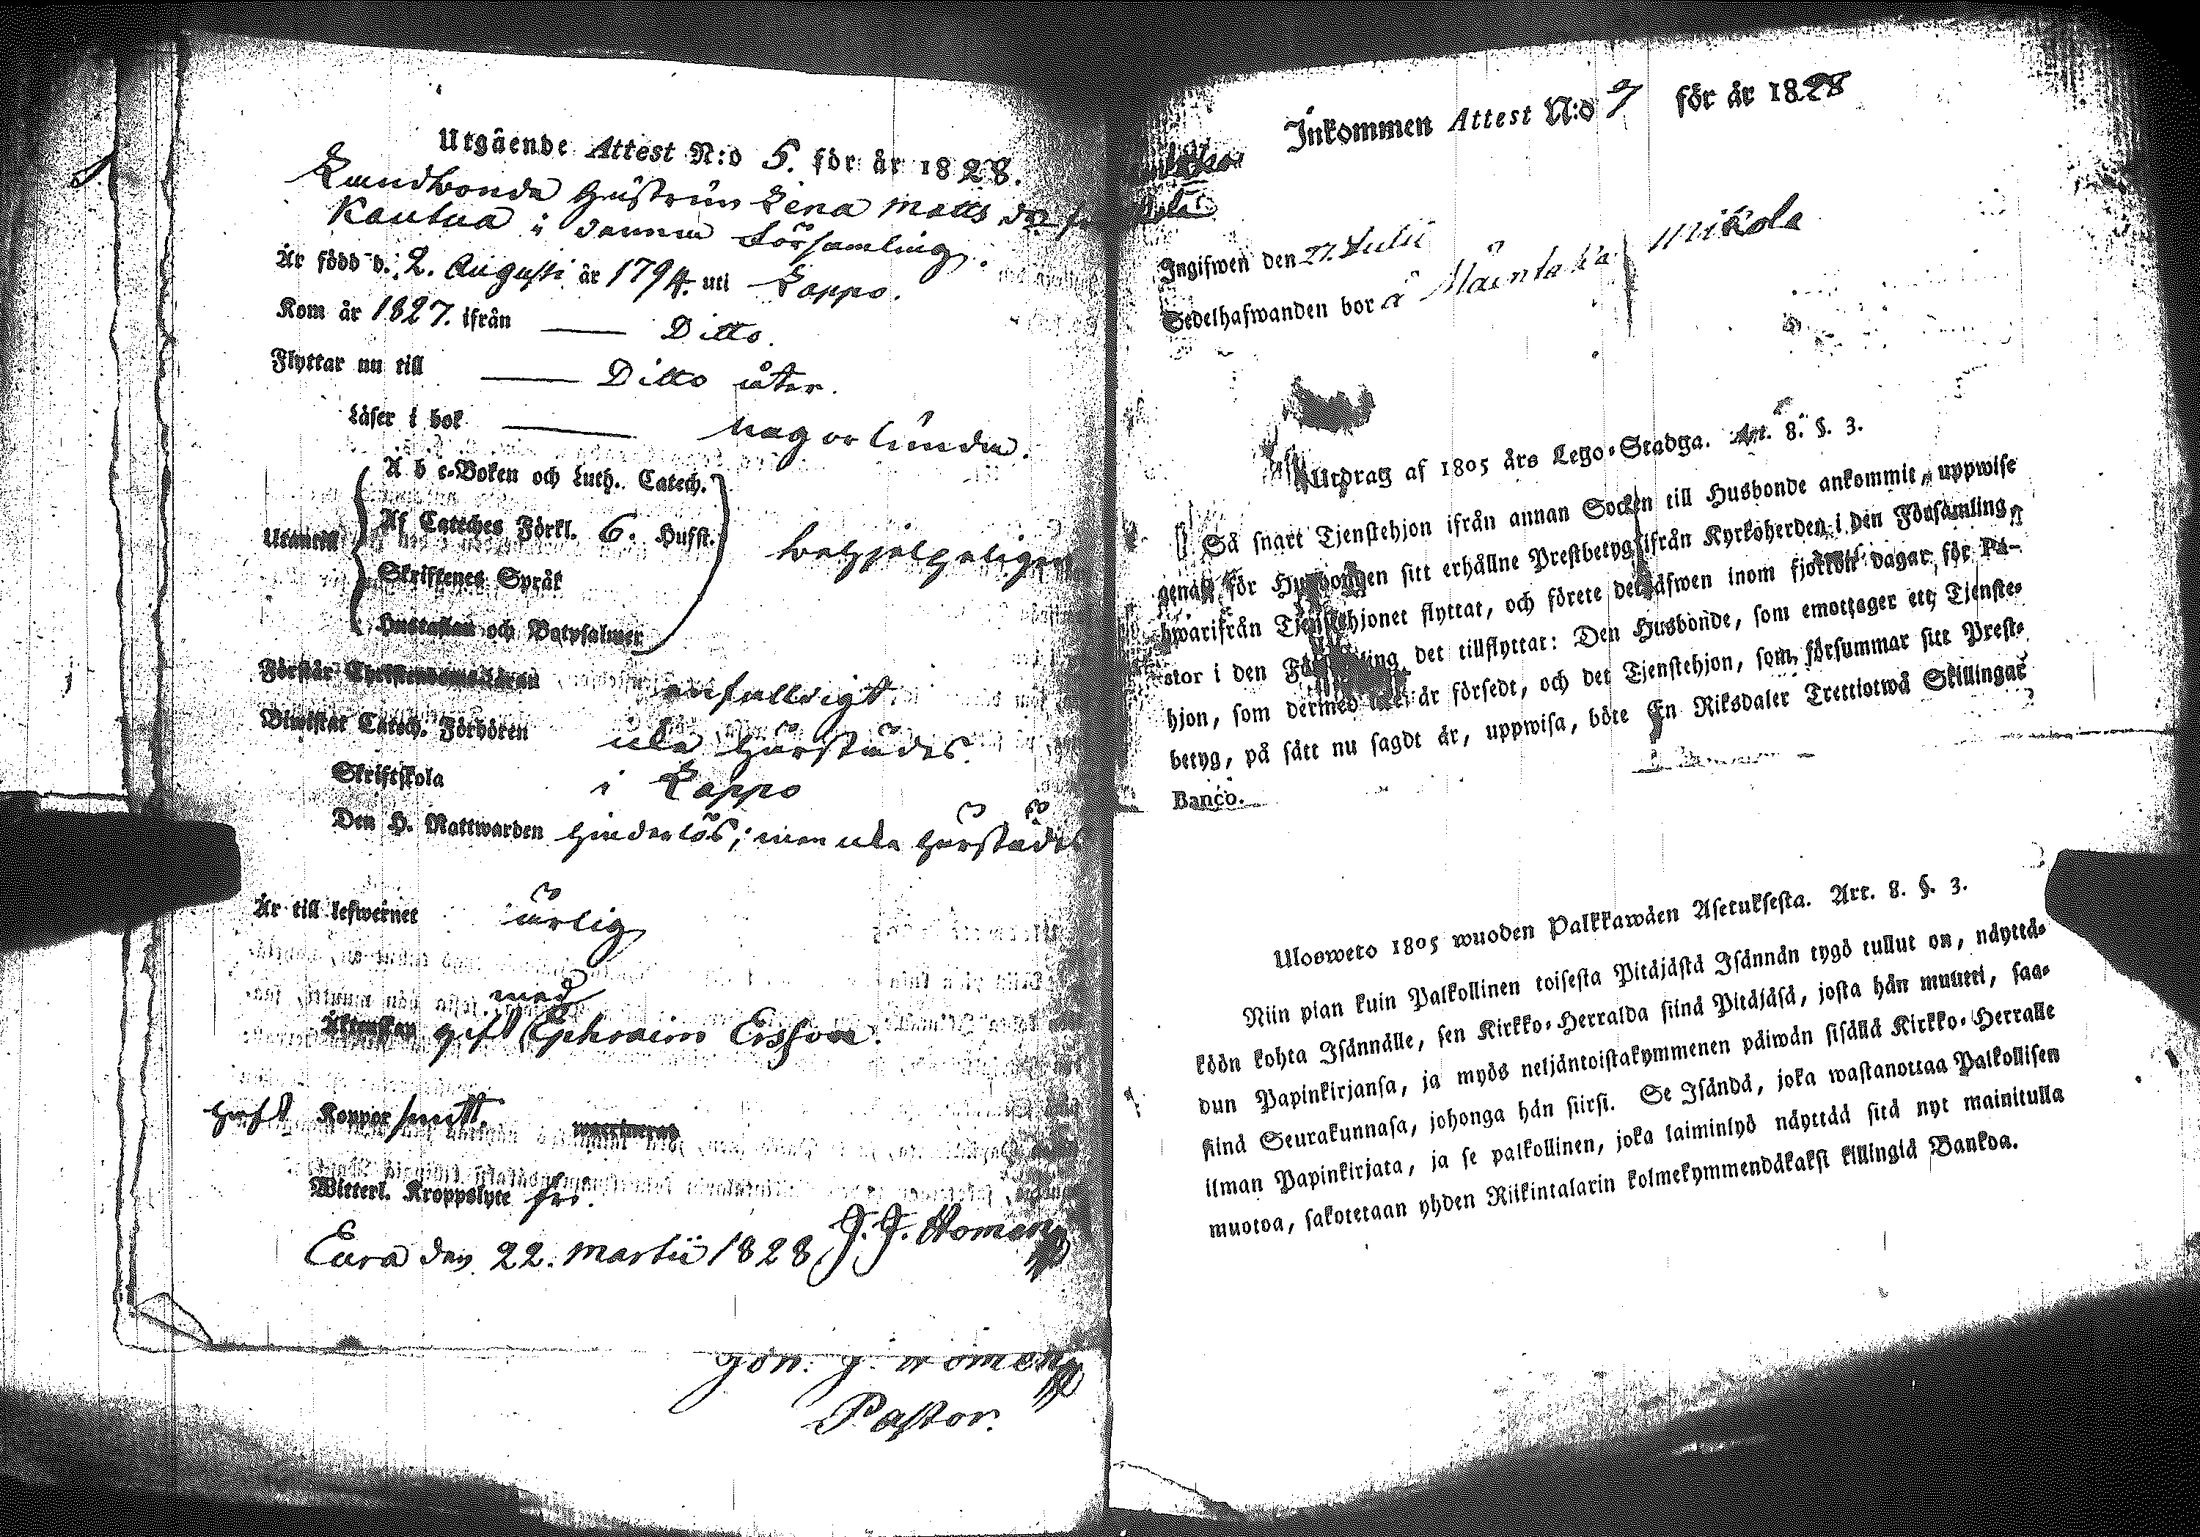 Utgående Attest N:o 5. för år 1828.
Landbonde hustrun Lena Matts dr
Kautua i denna församling.
Är född d. 2. Augusti år 1794. uti Lappo.
Kom år 1827. ifrån — Ditto.
Flyttar nu till — Ditto åter.
Läser i bok — någorlunda.
A b c-Boken och Luth. Catech.
Af Cateches Förkl. 6. Hufst.
Utantill
Skriftenes Språk
Hustaflan och Botpsalmer
Förstår Christendomsläran enfalldigt.
Biwistat Catech. Förhören icke härstädes.
Skriftskola i Lappo
Den H. Nattwarden hinderlös; men icke härstädes
Är till lefwernet ärlig
med
Äktenskap gift Ephraim Ersson.
haft Koppor smitt.
Witterl. Kroppslyte fri.
Eura den 22. Martii 1828 J. J. Homen
Pastor.
Inkommen Attest N:o 7 för år 1828
Ingifwen den 27. Julii
Sedelhafwanden bor å Mäntaka Mikola
Utdrag af 1805 års Lego-Stadga. Art. 8. §. 3.
Så snart Tjenstehjon ifrån annan Socken till Husbonde ankommit, uppwise
genast för Husbonden sitt erhållne Prestbetyg ifrån Kyrkoherden i den Församling,
hwarifrån Tjenstehjonet flyttat, och förete det äfwen inom fjorton dagar för Pa-
stor i den Församling det tillflyttat: Den Husbonde, som emottager ett Tjenste-
hjon, som dermed icke är försedt, och det Tjenstehjon, som försummar sitt Prest-
betyg, på sätt nu sagdt är, uppwisa, böte En Riksdaler Trettiotwå Skillingar
Banco.
Ulosweto 1805 wuoden Palkkawäen Asetuksesta. Art. 8. §. 3.
Niin pian kuin Palkollinen toisesta Pitäjästä Isännän tygö tullut on, näyttä-
köön kohta Isännälle, sen Kirkko-Herralda siinä Pitäjäsä, josta hän muutti, saa-
dun Papinkirjansa, ja myös neljäntoistakymmenen päiwän sisällä Kirkko-Herralle
siinä Seurakunnasa, johonga hän siirsi. Se Isändä, joka wastanottaa Palkollisen
ilman Papinkirjata, ja se palkollinen, joka laiminlyö näyttää sitä nyt mainitulla
muotoa, sakotetaan yhden Riikintalarin kolmekymmendäkaksi killingiä Bankoa.